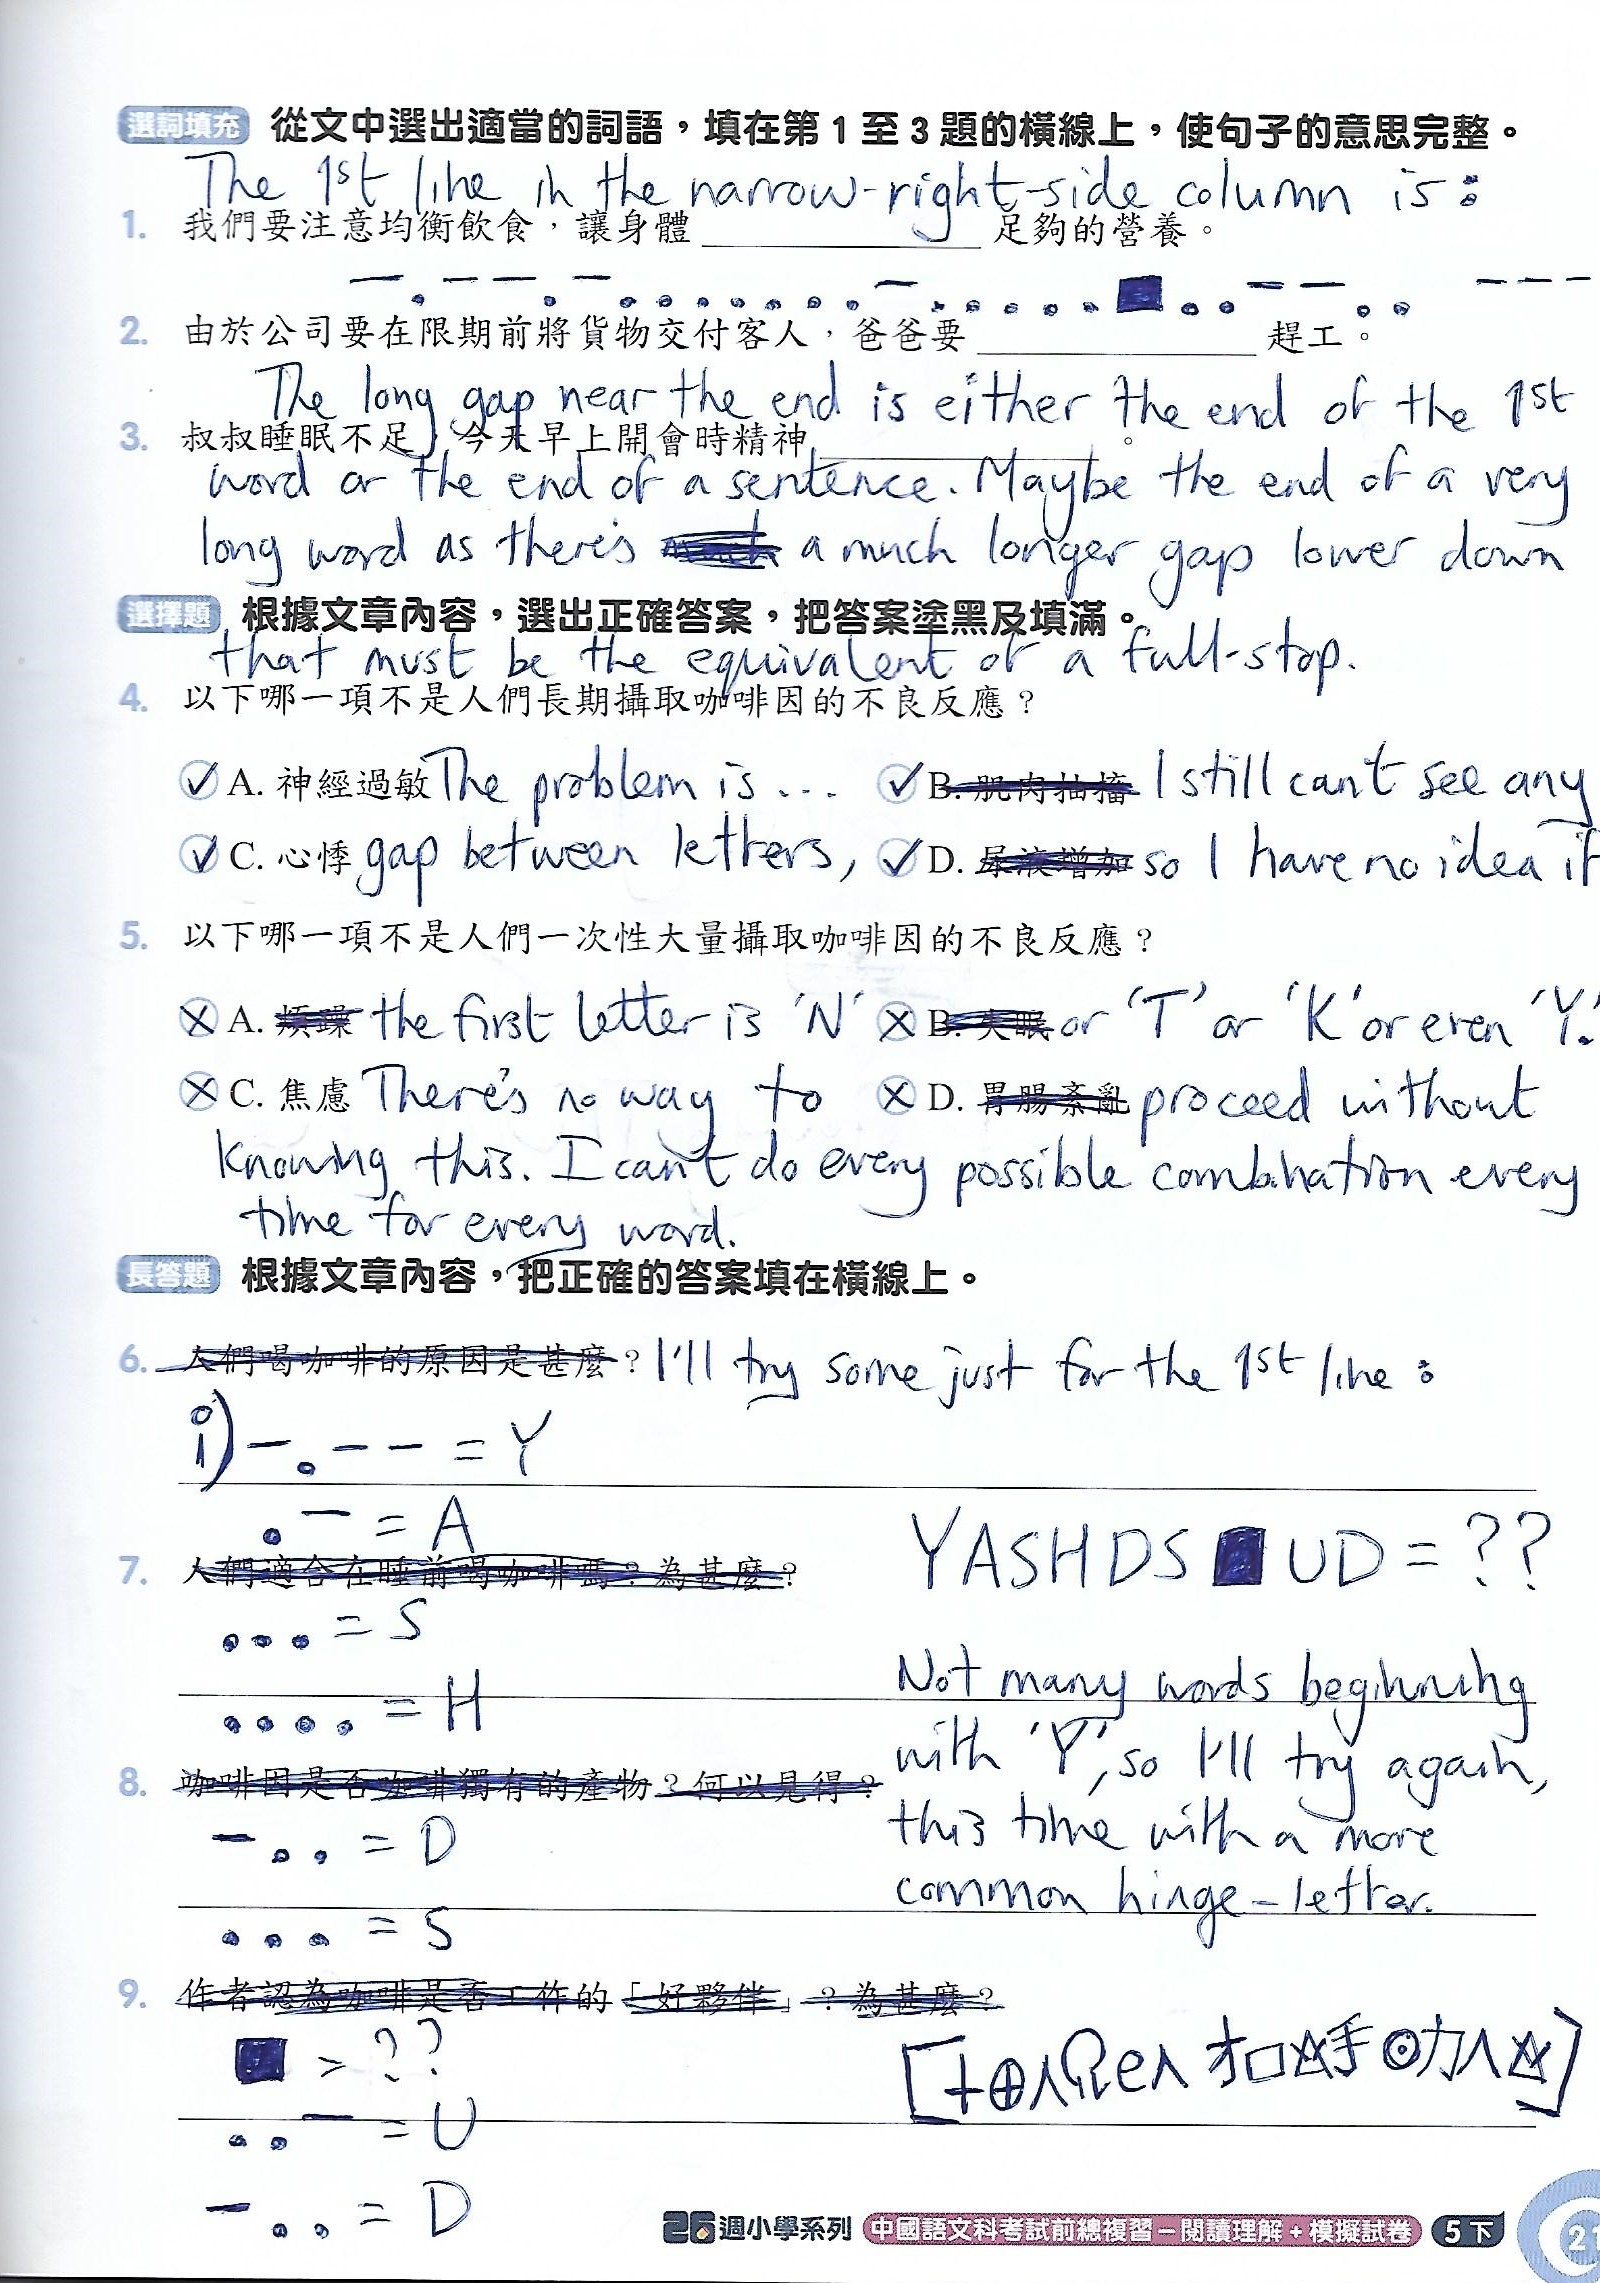 選詞填充 從文中選出適當的詞語，填在第1至3題的橫線上，使句子的意思完整。
The 1st line in the narrow-right-side column is:
1. 我們要注意均衡飲食，讓身體＿＿＿＿＿＿足夠的營養。
— . — — . — . . . . . . . — . . . . . ■ . . — — . . — — —
2. 由於公司要在限期前將貨物交付客人，爸爸要＿＿＿＿＿＿趕工。
The long gap near the end is either the end of the 1st
3. 叔叔睡眠不足，今天早上開會時精神＿＿＿＿＿＿。
word or the end of a sentence. Maybe the end of a very
long word as there's a much longer gap lower down
選擇題 根據文章內容，選出正確答案，把答案塗黑及填滿。
that must be the equivalent of a full-stop.
4. 以下哪一項不是人們長期攝取咖啡因的不良反應？
A. 神經過敏 The problem is... B. 肌肉抽搐 I still can't see any
C. 心悸 gap between letters, D. 尿液增加 so I have no idea if
5. 以下哪一項不是人們一次性大量攝取咖啡因的不良反應？
A. 煩躁 the first letter is 'N' B. 失眠 or 'T' or 'K' or even 'Y.'
C. 焦慮 There's no way to D. 胃腸紊亂 proceed without
knowing this. I can't do every possible combination every
time for every word.
長答題 根據文章內容，把正確的答案填在橫線上。
6. 人們喝咖啡的原因是甚麼？ I'll try some just for the 1st line:
i) — . — — = Y
. — = A
YASHDS ■ UD = ??
7. 人們適合在睡前喝咖啡嗎？為甚麼？
. . . = S
Not many words beginning
. . . . = H
with 'Y', so I'll try again,
8. 咖啡因是否咖啡獨有的產物？何以見得？
— . . = D
this time with a more
common hinge-letter.
. . . = S
9. 作者認為咖啡是否工作的「好夥伴」？為甚麼？
■ = ??
. . — = U
— . . = D
26週小學系列 中國語文科考試前總複習－閱讀理解＋模擬試卷 5下
21